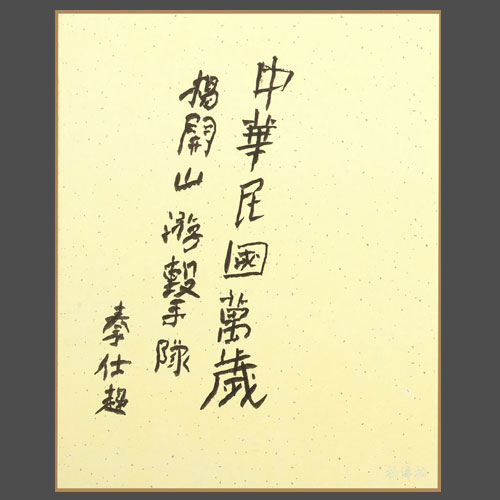 中華民國萬歲
楊開山游擊隊
秦仕超